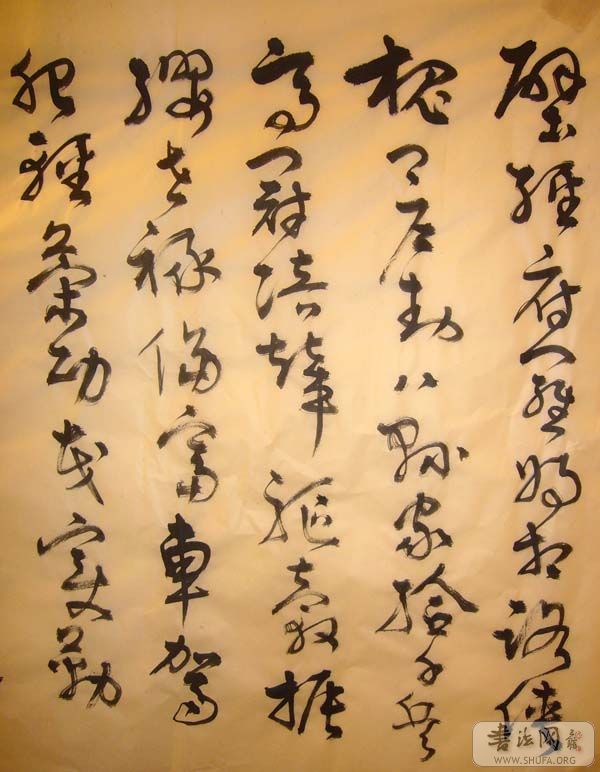 壁經府羅將相路俠
槐卿戶封八縣家給千兵
高冠陪輦驅轂振
纓世祿侈富車駕
肥輕策功茂實勒
書法网
WWW.SHUFA.ORG